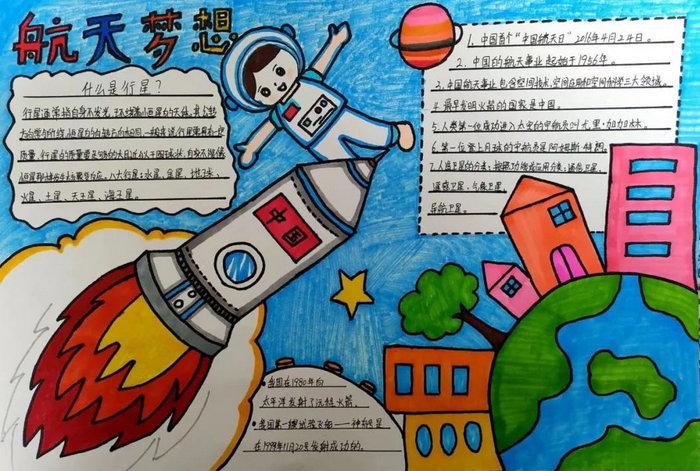 航天梦想
什么是行星？
行星通常指自身不发光,环绕着恒星的天体。其公转
方向常与所绕恒星的自转方向相同。一般来说行星需具有一定
质量,行星的质量要足够的大且近似于圆球状,自身不能像
恒星那样发生核聚变反应。八大行星:水星、金星、地球、
火星、土星、天王星、海王星。
中国
1. 中国首个"中国航天日"2016年4月24日。
2. 中国的航天事业起始于1956年。
3. 中国航天事业包含空间技术,空间应用和空间科学三大领域。
4. 最早发明火箭的国家是中国。
5. 人类第一位成功进入太空的宇航员叫尤里·加加林。
6. 第一位登上月球的宇航员是阿姆斯特朗。
7. 人造卫星的分类:按照功能或应用分类:通信卫星、
遥感卫星、气象卫星、
导航卫星。
我国在1980年向
太平洋发射了运载火箭。
我国第一艘试验飞船——神舟号是
在1999年11月20号发射成功的。